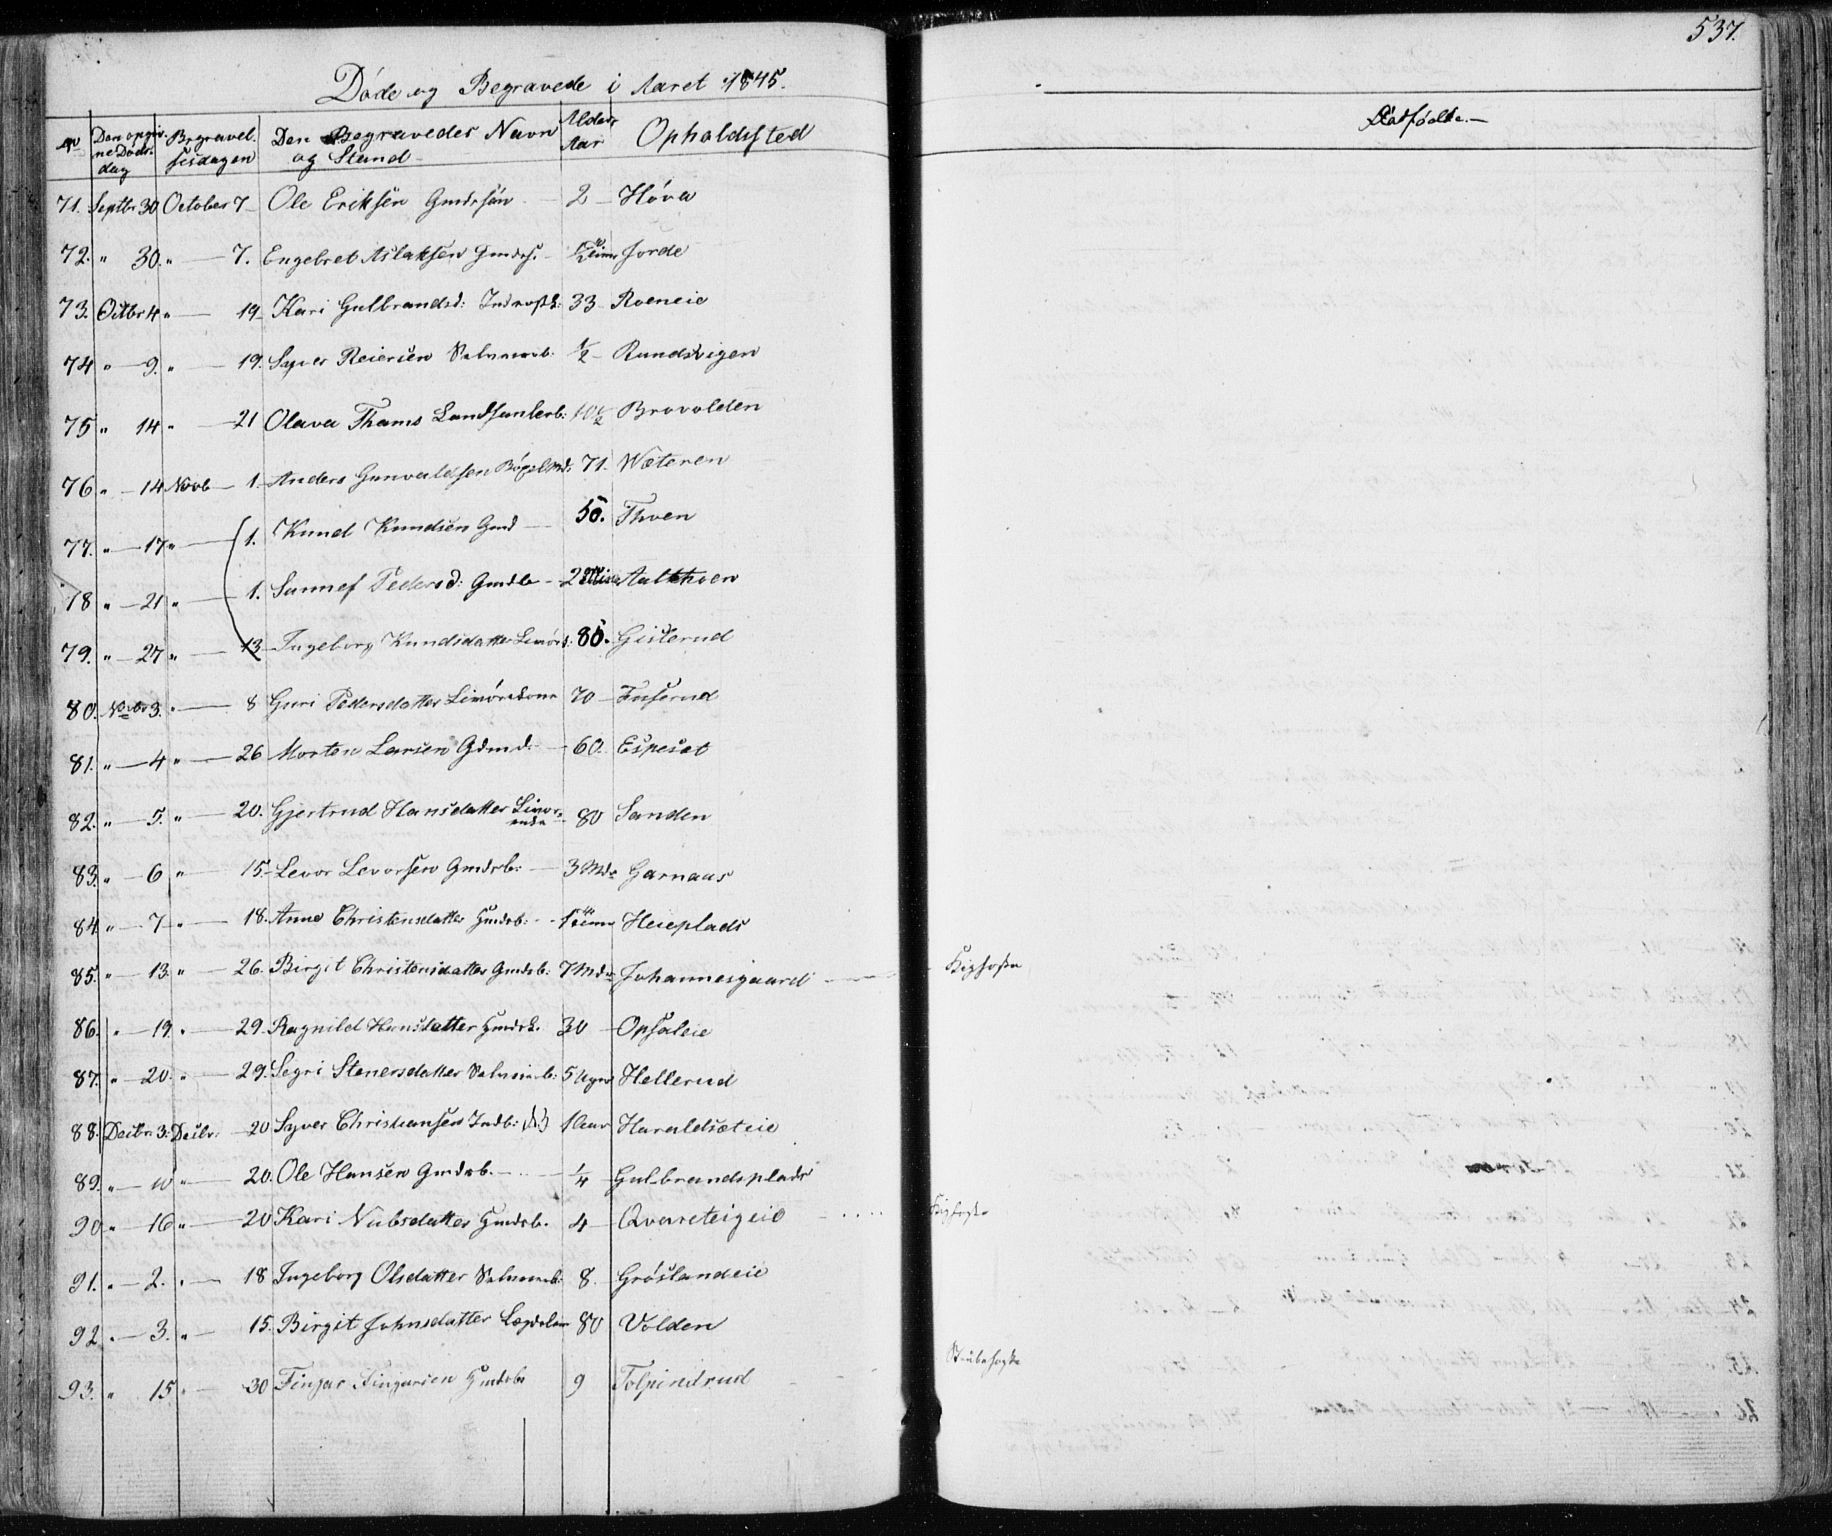 537.
Døde og Begravede i Aaret 1845.
No Den opgivne Døds dag Begravelsesdagen Den Begravedes Navn og Stand Alder Aar Opholdssted
Dødfødte.
71. Septbr 30 October 7 Ole Eriksen Gmdssøn 2 Høva
72. " 30. " 7. Engebret Aslaksen Gmdss. Jorde
73. Octbr 4 " 19 Kari Gulbrandsd: 33 Roeneie
74 " 9. " 19. Syver Reiersen ½ Rundvigen
75 " 14 " 21 Olava Thams 10½ Brovolden
76 " 14 Novb 1. Anders Gunvaldsen 71. Wæteren
77. " 17 " 1. Knud Knudsen Gmd 50. Thoen
78 " 21 " 1. Sunnef Pedersd: Gmdb 2 Aalthoen
79. " 27 " 13 Ingeborg Knudsdatter 85. Gisterud
80. Novbr 3. " 8 Guri Pedersdatter 70 Fuserud
81. " 4 " 26 Morten Larsen Gdmd. 60. Espeset
82. " 5. " 20. Gjertrud Hansdatter 80 Sanden
83. " 6 " 15. Levor Levorsen Gmdsb: 3 Mdr Garnaas
84 " 7 " 18. Anne Christensdatter Hmdsb: Heieplads
85. " 13 " 26. Birgit Christensdatter Gmdsb: 7 Mdr Johannesgaard Kighoste
86. " 19 " 29. Ragnild Hansdatter 30 Opsaleie
87. " 20. " 29. Segri Stenersdatter 5 Uger Hellerud
88. Decbr: 3. Decbr: 20 Syver Christiansen Indb: 1 Aar Haraldsæteie
89. " 10 " 20. Ole Hansen Gmdsb. ¼ Gulbrandsplads
90 " 16 " 20 Kari Nubsdatter Hmdsb. 4 Qvareteigeie Kighoste
91. " 2. " 18 Ingeborg Olsdatter 8. Grøslandeie
92 " 3. " 15. Birgit Johnsdatter 80 Volden
93. " 15 " 30 Fingar Fingarsen Hmdsb. 9 Tolpinrud Strubehoste